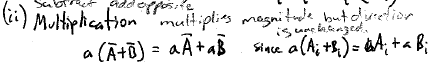 Subtract add opposite
(ii) Multiplication multiplies magnitude but direction
is unchanged.
a(A̅+B̅) = aA̅+aB̅ since a(Aᵢ+Bᵢ)=aAᵢ+aBᵢ